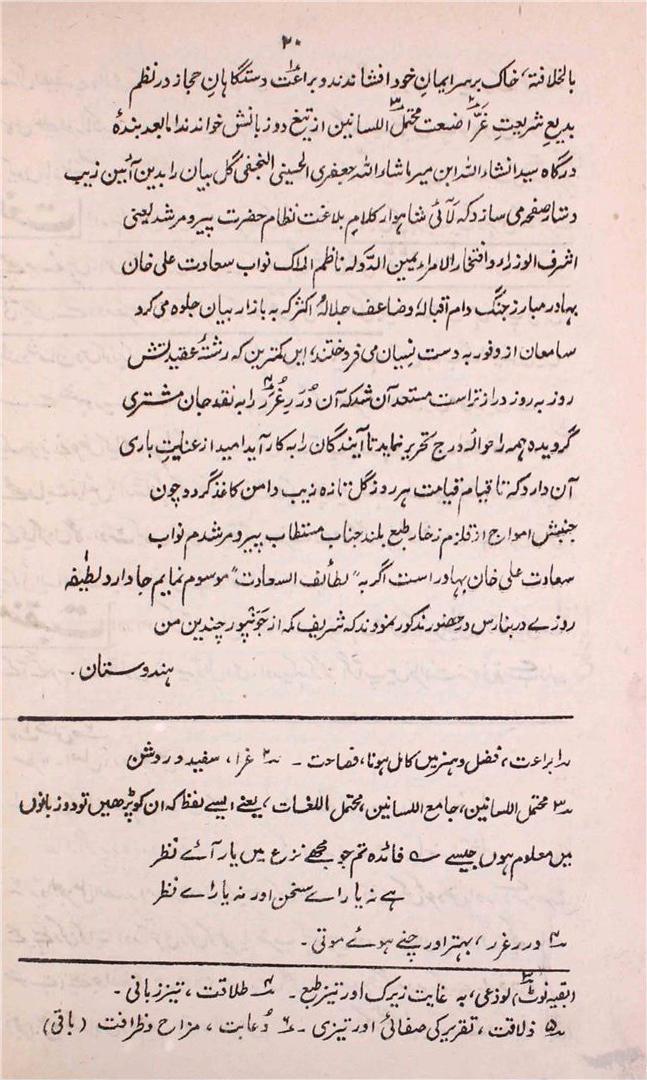 ۲۰
بالخلافۃ، خاک برسر ایمانِ خود افشاندند و براعت۱ دستگاہانِ حجاز در نظم
بدیع شریعتِ غرّا۲ صنعت محتمل اللسانین۳ از تیغِ دوزبانش خواندند امابعد بندۂ
درگاہ سید انشاء اللہ ابن میر ماشاء اللہ جعفری الحسینی النجفی گل بیان را بدین آئین زیب
دستار صفحہ می سازد کہ لآلئی شاہوار کلام بلاغت نظام حضرت پیرومرشد یعنی
اشرف الوزراء وافتخار الامراء یمین الدولہ ناظم الملک نواب سعادت علی خان
بہادر مبارز جنگ دام اقبالہٗ وضاعف جلالہٗ اکثر کہ بہ بازار بیان جلوہ می کرد
سامعان از وفور بہ دست نسیان می فروختند، ایں کمترین کہ رشتۂ عقیدتش
روز بہ روز دراز تر است مستعد آن شد کہ آن دُرَرِ غُرَر۴ را بہ نقد جان مشتری
گرویدہ ہمہ را حوالہ درج تحریر نماید تا آیندگان را بہ کار آید امید از عنایتِ باری
آن دارد کہ تا قیامِ قیامت ہر روز گل تازہ زیب دامن کاغذ گردد چون
جنبش امواج از قلزم زخار طبع بلند جناب مستطاب پیرومرشدم نواب
سعادت علی خان بہادر است اگر بہ "لطائف السعادت" موسوم نمایم جا دارد لطیفہ
روزے در بنارس در حضور مذکور نمودند کہ شریف مکہ از جَونپور چندین من
ہندوستان.
۱ براعت، فضل و ہنر میں کامل ہونا، فصاحت ـ ۲ غرا، سفید و روشن
۳ محتمل اللسانین، جامع اللسانین، محتمل اللغات، یعنے ایسے لفظ کہ ان کو پڑھیں تو دو زبانوں
میں معلوم ہوں جیسے ؎ فائدہ تم جو مجھے نزع میں یار آئے نظر
ہے نہ یارائے سخن اور نہ یارائے نظر
۴ درر غرر، بہتر اور چنے ہوئے موتی ـ
(بقیہ نوٹ) ۳ لوذعی، بہ غایت زیرک اور تیز طبع ـ ۴ طلاقت، تیز زبانی ـ
۵ ذلاقت، تقریر کی صفائی اور تیزی ـ ۶ دُعابت، مزاح و ظرافت (باقی)